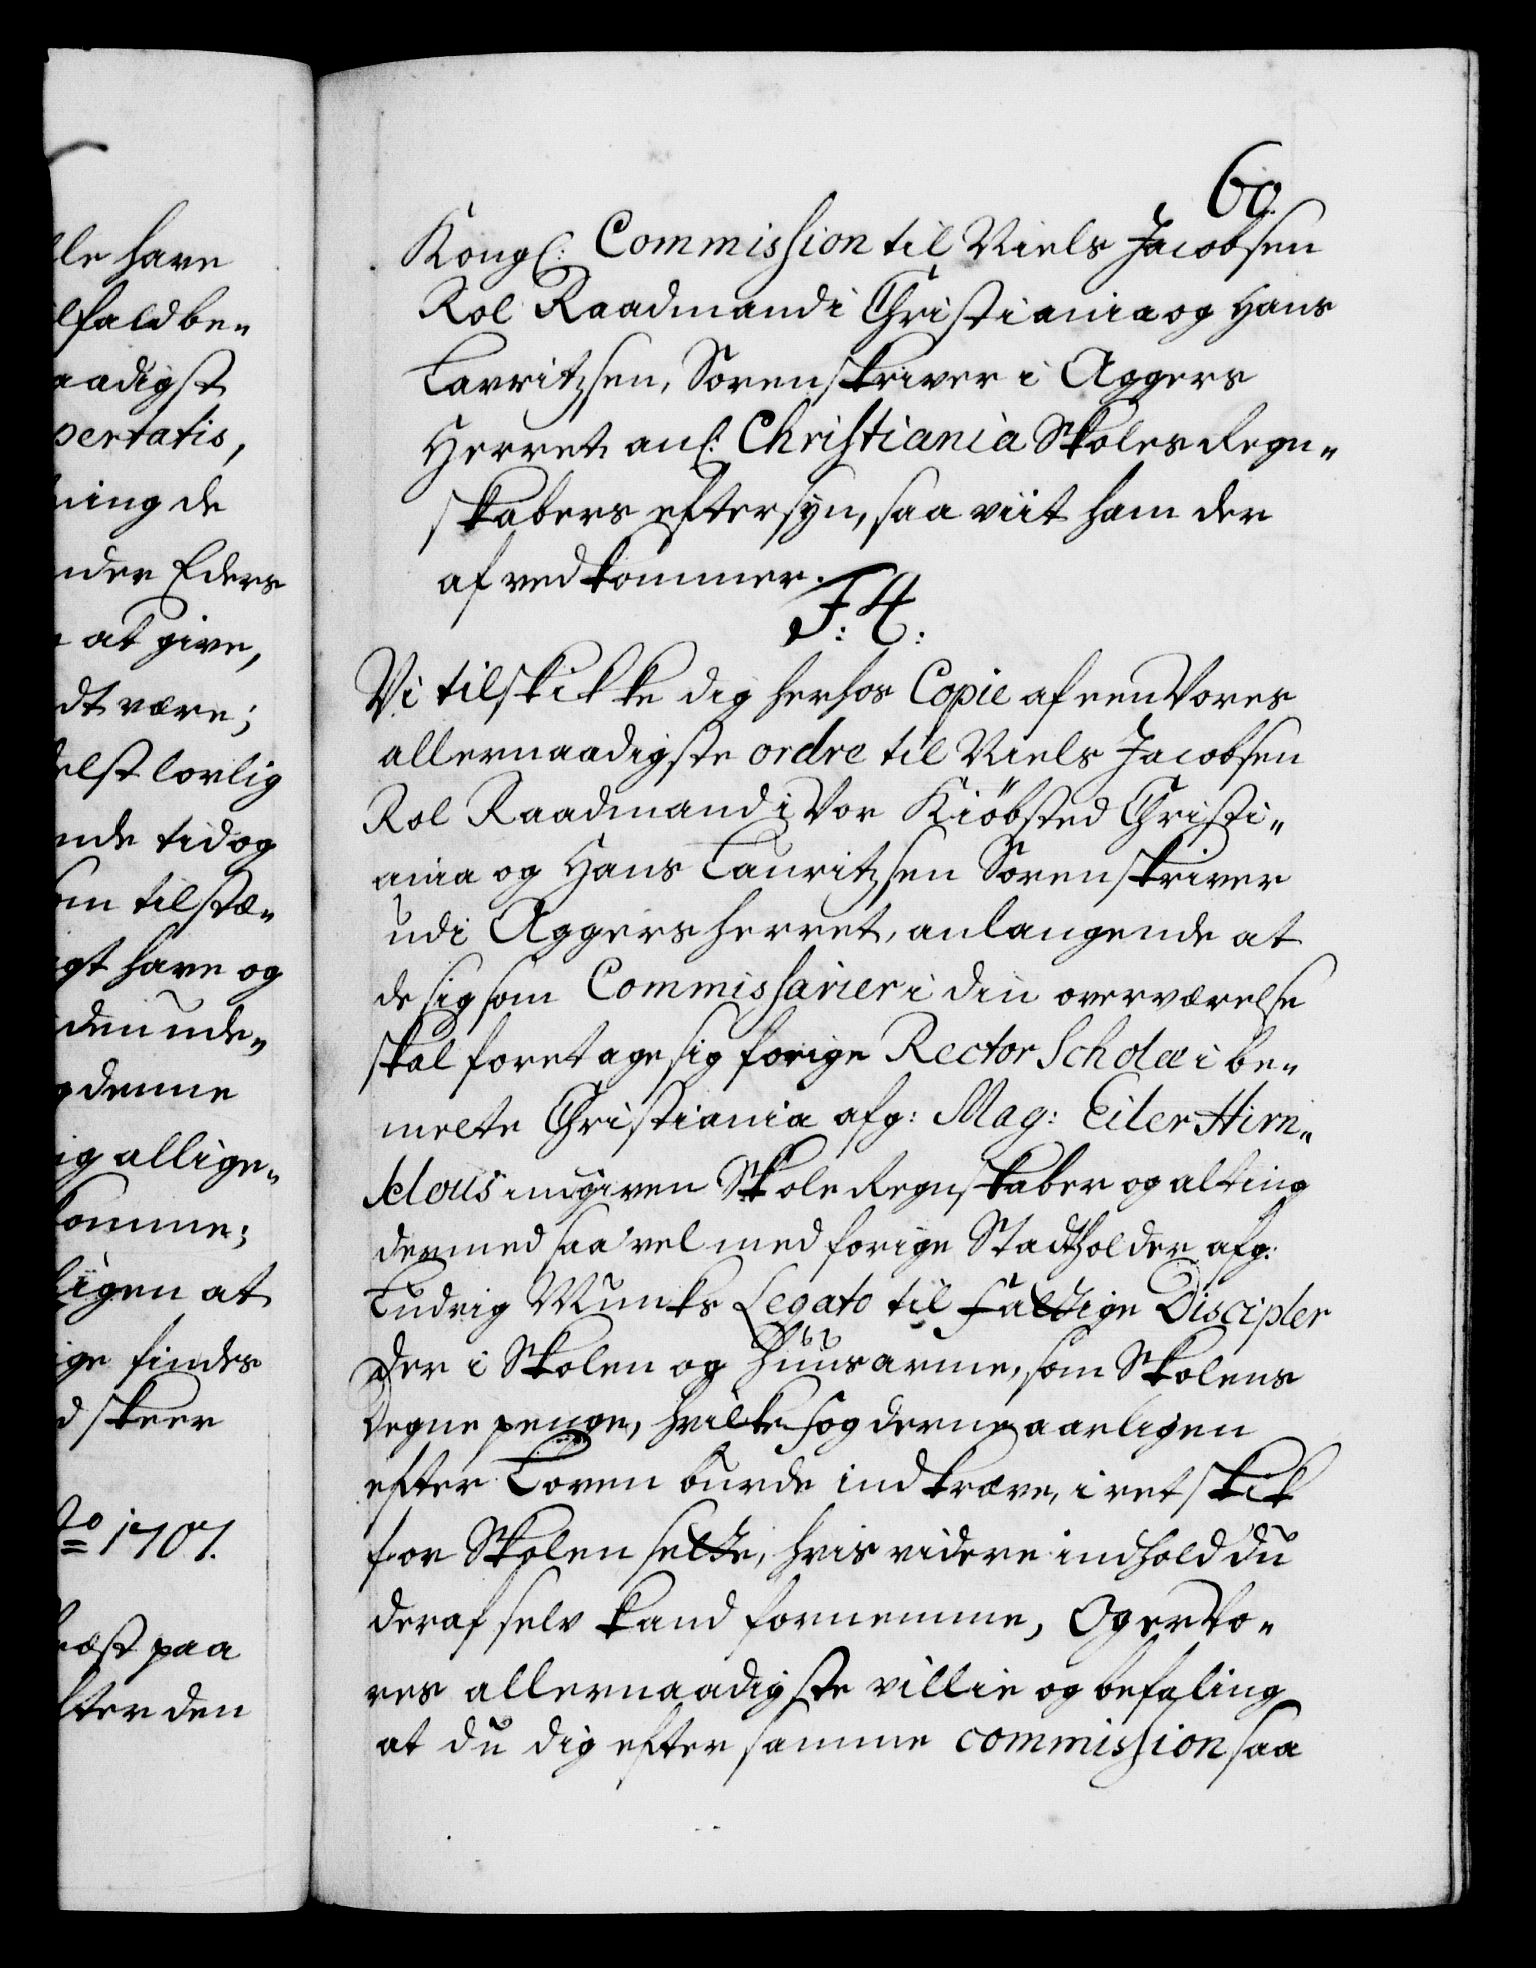 le have
lfald be„
aadigst
pertatis,
ning de
nder Eders
at give,
dt være;
elst lovlig
nde tid og
om tilstæ„
igt have og
den ude„
denne
ig allige„
komme;
ligen at
ige findes
d skeer
No 1707.
paa
lter den
60.
Kongl: Commission til Niels Jacobsen
Kol Raadmand i Christiania og Hans
Lavritzsen, Sorenskriver i Aggers
Herret anl: Christiania Skoles Regn„
skabers eftersyn, saa viit ham der
af vedkommer.
F: 4:
Vi tilskikke dig herhos Copie af een Vores
allernaadigste ordre til Niels Jacobsen
Kol Raadmand i Vor Kiöbsted Christi„
ania og Hans Lauritzsen Sorenskriver
udi Aggers herret, anlangende at
de sig som Commissarier i din overværelse
skal foretage sig forige Rector Scholæ i be„
melte Christiania afg: Mag: Eiler Hirn„
klous indgiven Skole Regnskaber og alting
dermed saa vel med forige Stadtholder afg:
Ludvig Munks Legato til fattige Discipler
der i Skolen og Huusarme, som Skolens
Degne penge, hvilke fogderne aarligen
efter Loven burde indkræve, i ret skik
for Skolen sette, hvis videre indhold du
deraf selv kand fornemme, Og er Vo„
res allernaadigste villie og befaling
at du dig efter samme commission saa